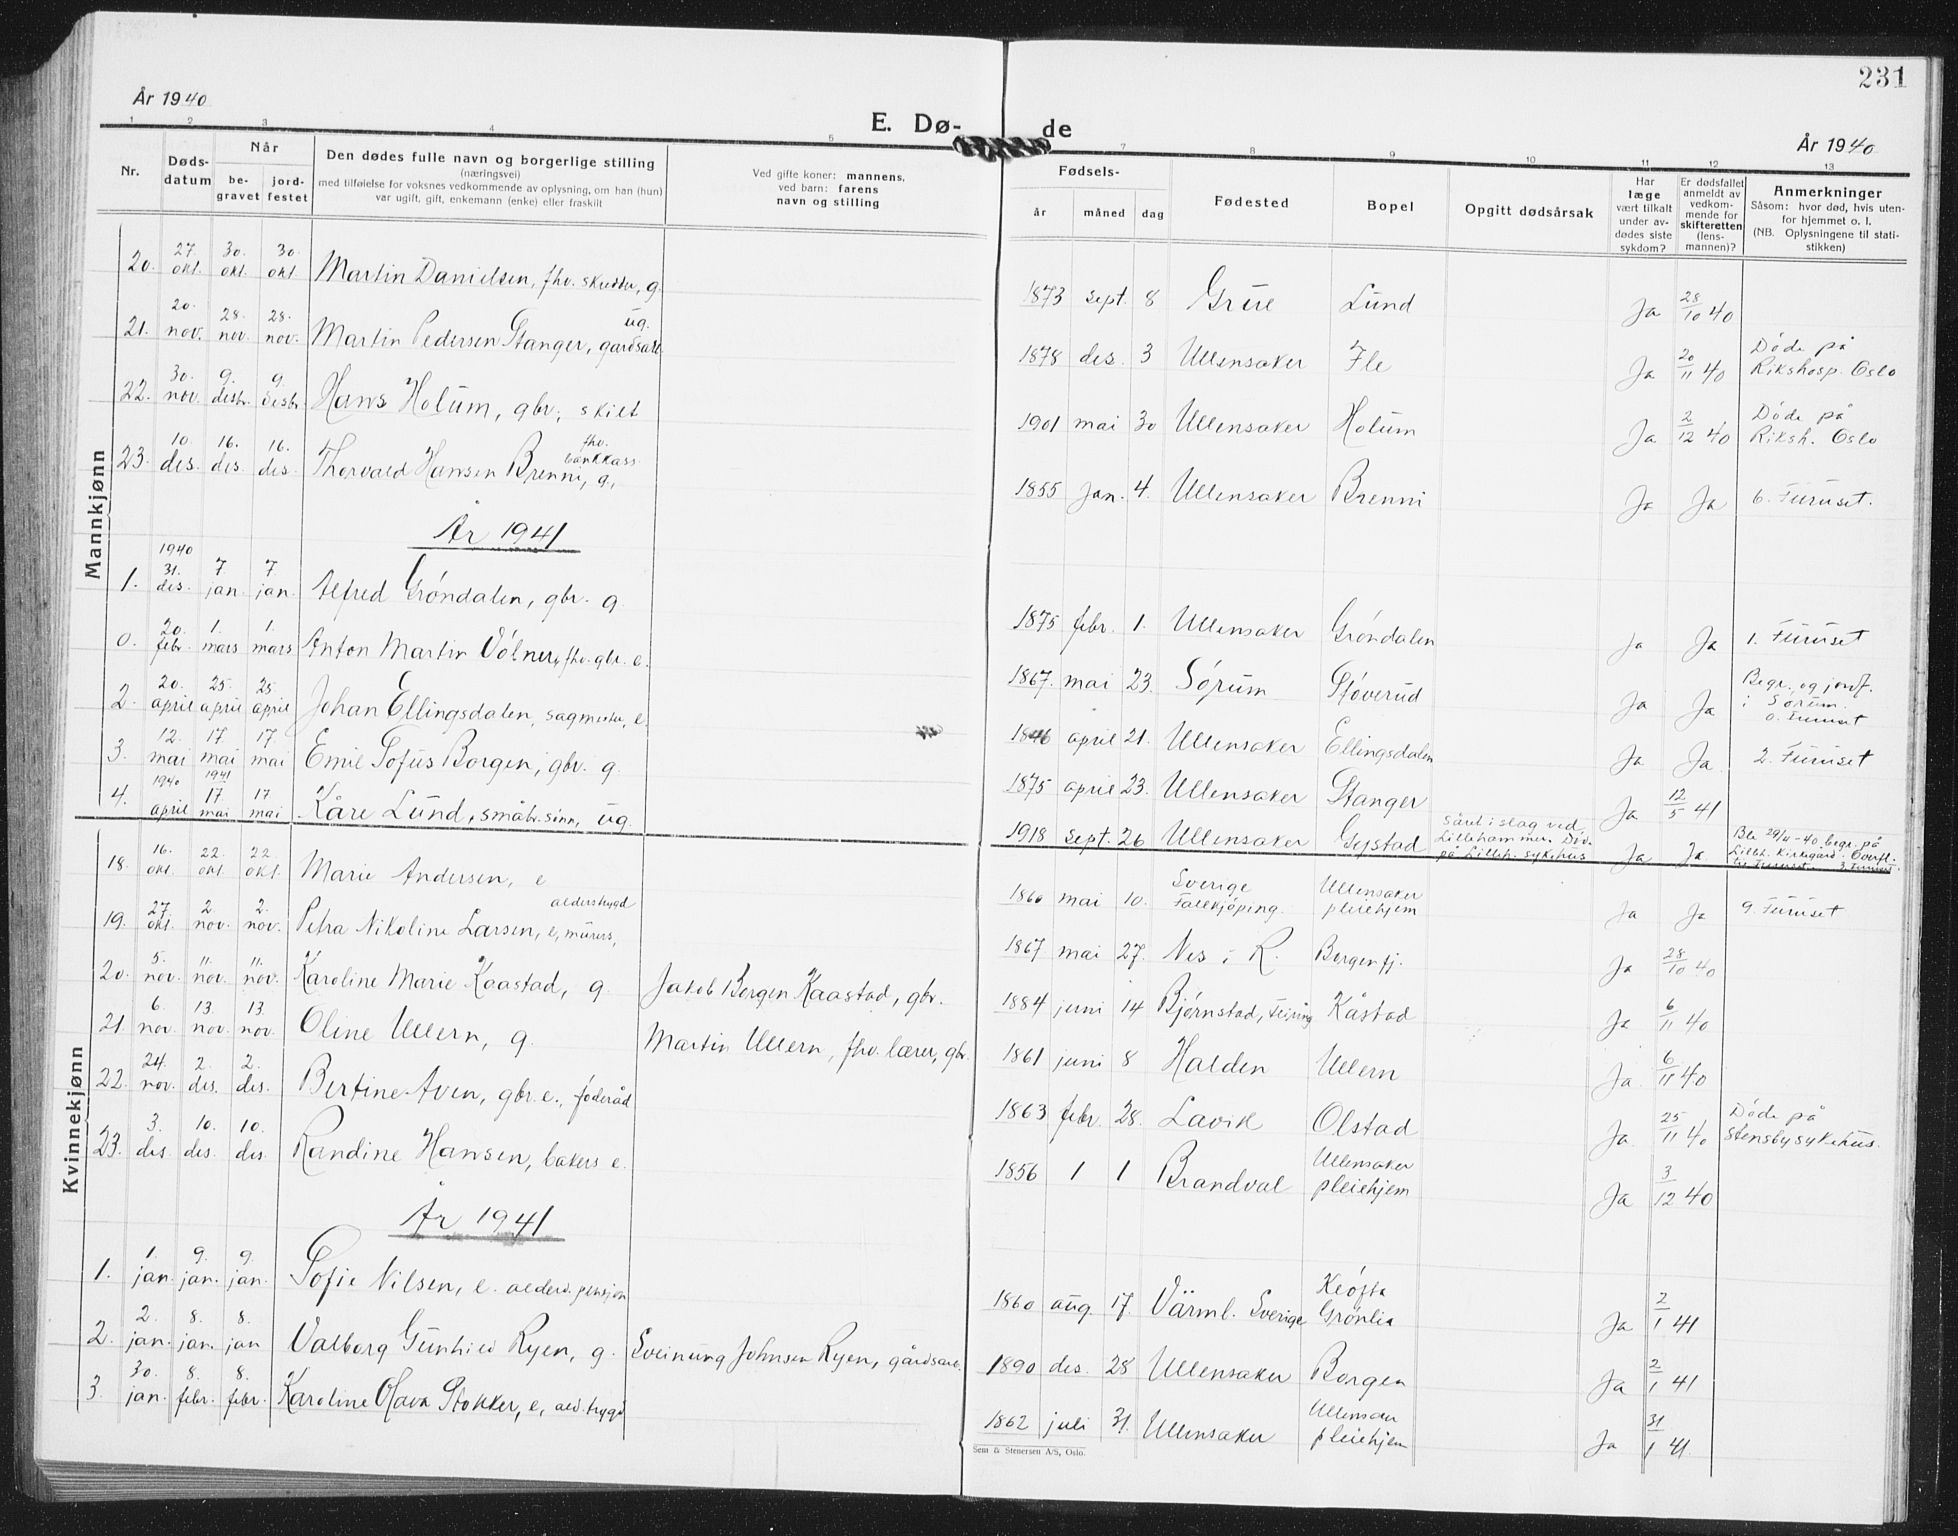 231
År 1940
E. Dø- de
År 1940
1 2 3 4 5 7 8 9 10 11 12 13
Nr.
Døds-
datum
Når
be-
gravet
jord-
festet
Den dødes fulle navn og borgerlige stilling
(næringsvei)
med tilføielse for voksnes vedkommende av oplysning, om han (hun)
var ugift, gift, enkemann (enke) eller fraskilt
Ved gifte koner: mannens,
ved barn: farens
navn og stilling
Fødsels-
år måned dag
Fødested
Bopel
Opgitt dødsårsak
Har
læge
vært tilkalt
under av-
dødes siste
sykdom?
Er dødsfallet
anmeldt av
vedkom-
mende for
skifteretten
(lens-
mannen)?
Anmerkninger
Såsom: hvor død, hvis uten-
for hjemmet o. l.
(NB. Oplysningene til stati-
stikken)
Mannkjønn
20. 27. okt. 30. okt. 30. okt. Martin Danielsen, fhv. skredder, g. 1873 sept. 8 Grue Lund Ja 28/10 40
21. 20. nov. 28. nov. 28. nov. Martin Pedersen Stanger, gårdsarb. ug. 1878 des. 3 Ullensaker Fle Ja 20/11 40 Døde på Rikshosp. Oslo
22. 30. nov. 9. desbr. 9. desbr. Hans Holum, gbr., skilt 1901 mai 30 Ullensaker Holum Ja 2/12 40 Døde på Riksh. Oslo
23. 10. des. 16. des. 16. des. Thorvald Hansen Brenni, fhv. bankkass. g. 1855 jan. 4. Ullensaker Brenni Ja Ja 6. Furuset.
År 1941
1. 1940 31. des. 7 jan. 7 jan. Alfred Grøndalen, gbr. g. 1875 febr. 1. Ullensaker Grøndalen Ja Ja 1. Furuset
0. 20. febr. 1. mars 1. mars Anton Martin Völner, fhv. gbr. e. 1867. mai 23. Sørum Støverud Ja Ja Begr. og jordf. i Sørum. 0. Furuset
2. 20. april 25. april 25. april Johan Ellingsdalen, sagmester, e. 1846 april 21. Ullensaker Ellingsdalen Ja Ja 2. Furuset
3. 12. mai 17. mai 17. mai Emil Sofus Borgen, gbr. g. 1875 april 23. Ullensaker Stanger Ja 12/5 41
4. 1940 april 1941 17 mai 17 mai Kåre Lund, småbr.sønn, ug. 1918 sept. 26 Ullensaker Gystad Såret i slag ved Lillehammer. Død på Lilleh. sykehus Ja Ja Ble 29/4-40 begr. på Lilleh. kirkegård. Overfl. til Furuset. 3. Furuset
Kvinnekjønn
18. 16. okt. 22. okt. 22. okt. Marie Andersen, e 1860 mai 10. Sverige Falekjöping. Ullensaker pleiehjem Ja Ja 9. Furuset
19. 27. okt. 2. nov. 2. nov. Petra Nikoline Larsen, e, murers, alderstrygd 1867 mai 27. Nes i R. Borgen fj. Ja 28/10 40
20. 5. nov. 11. nov. 11. nov. Karoline Marie Kaastad, g. Jakob Borgen Kaastad, gbr. 1884 juni 14 Bjørnstad, Feiring Kåstad Ja 6/11 40
21. 6. nov. 13. nov. 13. nov. Oline Ullern, g. Martin Ullern, fhv. lærer, gbr. 1861 juni 8 Halden Ullern Ja 6/11 40
22. 24. nov. 2. des. 2. des. Bertine Aven, gbr. e., føderåd 1863 febr. 28. Lavik Olstad Ja 25/11 40 Døde på Stensby sykehus.
23. 3. des. 10. des. 10. des. Randine Hansen, bakers e. 1856 1 1 Brandval Ullensaker pleiehjem Ja 3/12 40
År 1941
1. 1. jan. 9. jan. 9. jan. Sofie Nilsen, e. alders.pensjon 1860 aug. 17. Värml. Sverige Kløfta Grønlia Ja 2/1 41
2. 2. jan. 8. jan. 8. jan Valborg Gunhild Ryen, g. Sveinung Johnsen Ryen, gårdsarb. 1890 des. 28 Ullensaker Borgen Ja 2/1 41
3. 30. jan. 8. febr. 8. febr. Karoline Olava Stokker, e, ald.trygd 1862 juli 31. Ullensaker Ullensaker pleiehjem Ja 31/1 41.
Sem & Stenersen A/S, Oslo.